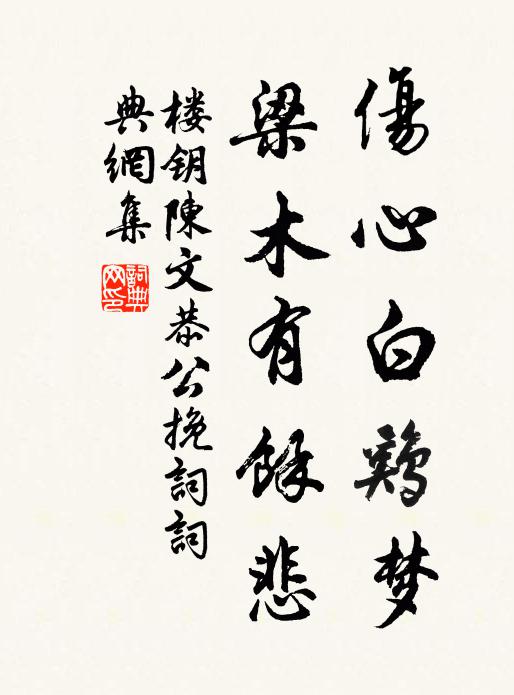 傷心白鷄梦
梁木有餘悲
楼钥陳文恭公挽詞詞
典網集
詞典网印